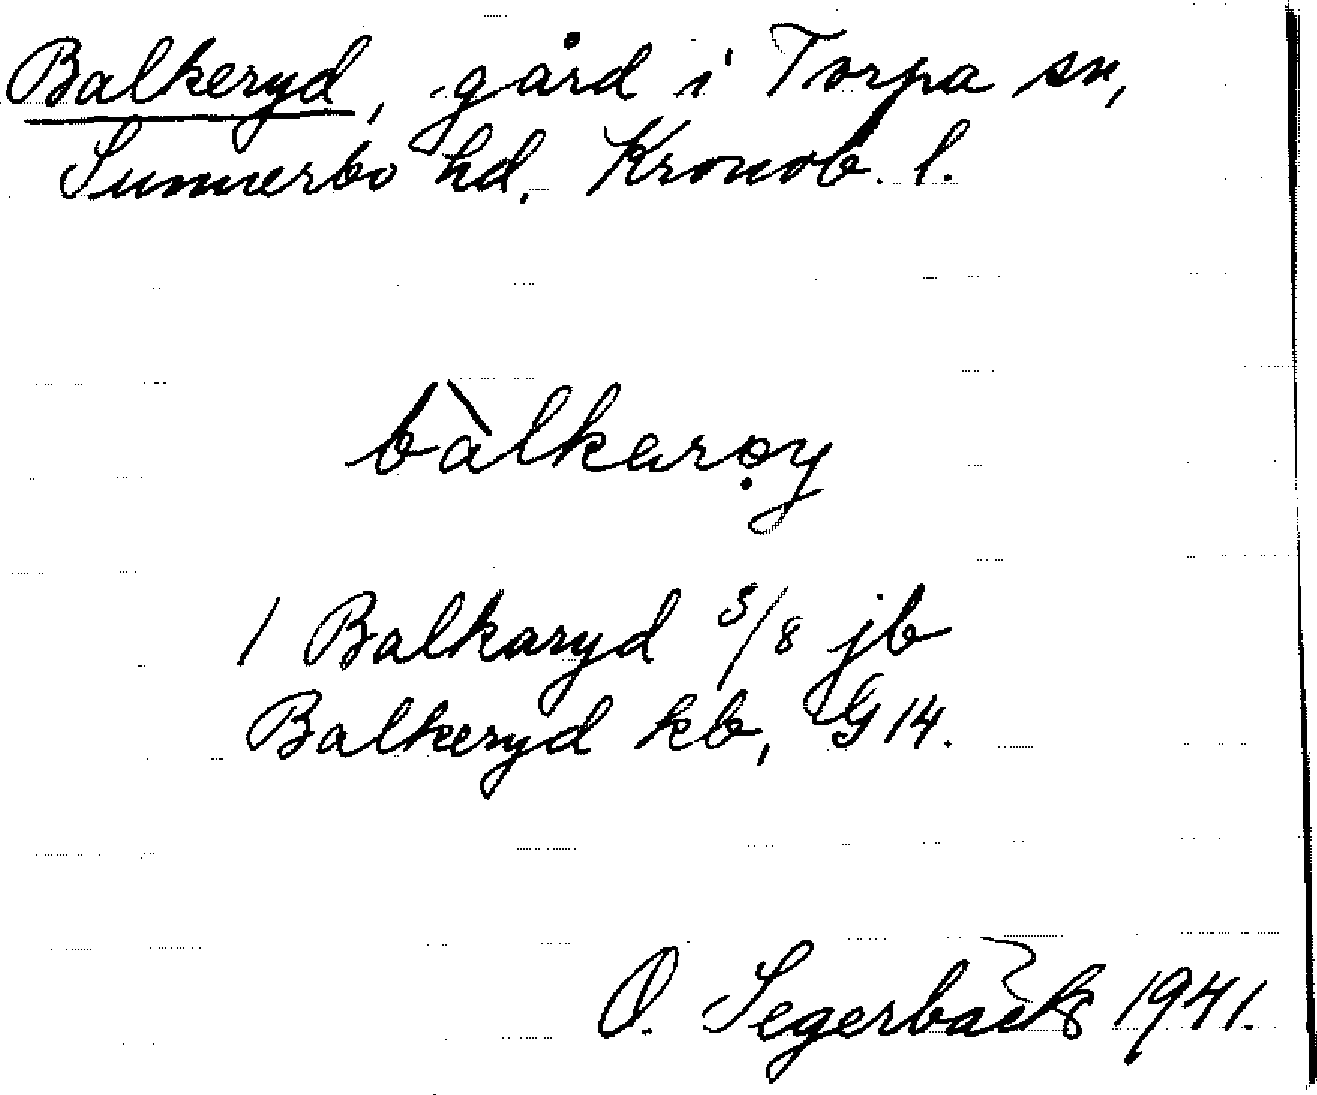 Balkeryd, gård i Torpa sn,
Sunnerbo hd, Kronob. l.
bàlkarọy
1 Balkaryd 5/8 jb
Balkeryd kb, G 14.
O. Segerbäck 1941.